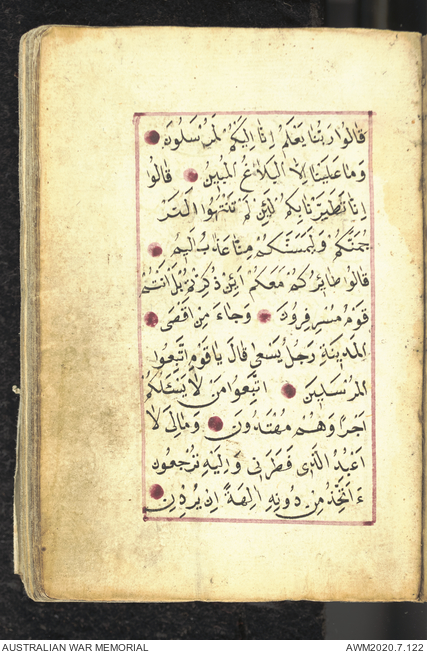 قَالُوا رَبُّنَا يَعْلَمُ اِنَّا اِلَيْكُمْ لَمُرْسَلُونَ
وَمَا عَلَيْنَا اِلَّا الْبَلَاغُ الْمُبِينُ قَالُوا
اِنَّا تَطَيَّرْنَا بِكُمْ لَئِنْ لَمْ تَنْتَهُوا لَنَرْ
جُمَنَّكُمْ وَلَيَمَسَّنَّكُمْ مِنَّا عَذَابٌ اَلِيمٌ
قَالُوا طَائِرُكُمْ مَعَكُمْ اَئِنْ ذُكِّرْتُمْ بَلْ اَنْتُمْ
قَوْمٌ مُسْرِفُونَ وَجَاءَ مِنْ اَقْصَى
الْمَدِينَةِ رَجُلٌ يَسْعَى قَالَ يَا قَوْمِ اتَّبِعُوا
الْمُرْسَلِينَ اتَّبِعُوا مَنْ لَا يَسْئَلُكُمْ
اَجْرًا وَهُمْ مُهْتَدُونَ وَمَالِيَ لَا
اَعْبُدُ الَّذِى فَطَرَنِى وَاِلَيْهِ تُرْجَعُونَ
ءَاَتَّخِذُ مِنْ دُونِهِ اٰلِهَةً اِنْ يُرِدْنِ
AUSTRALIAN WAR MEMORIAL AWM2020.7.122